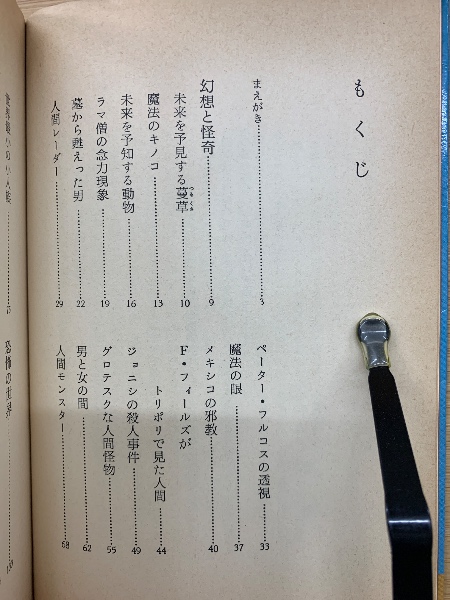 もくじ
まえがき 3
幻想と怪奇 9
未来を予見する蔓草 10
つるくさ
魔法のキノコ 13
未来を予知する動物 16
ラマ僧の念力現象 19
墓から甦えった男 22
人間レーダー 29
ペーター・フルコスの透視 33
魔法の眼 37
メキシコの邪教 40
F・フィールズが
トリポリで見た人間 44
ジョニシの殺人事件 49
グロテスクな人間怪物 55
男と女の間 62
人間モンスター 68
恐怖の世界